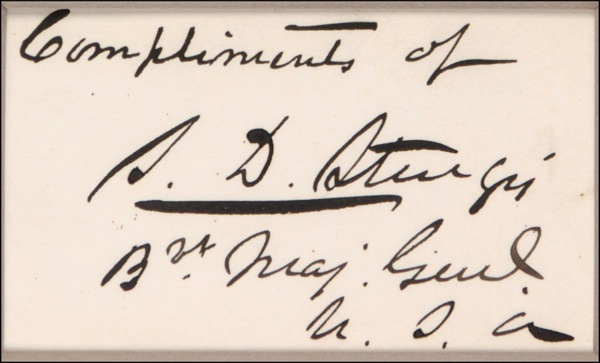 Compliments of
S. D. Sturgis
Bvt. Maj. Genl.
U. S. A